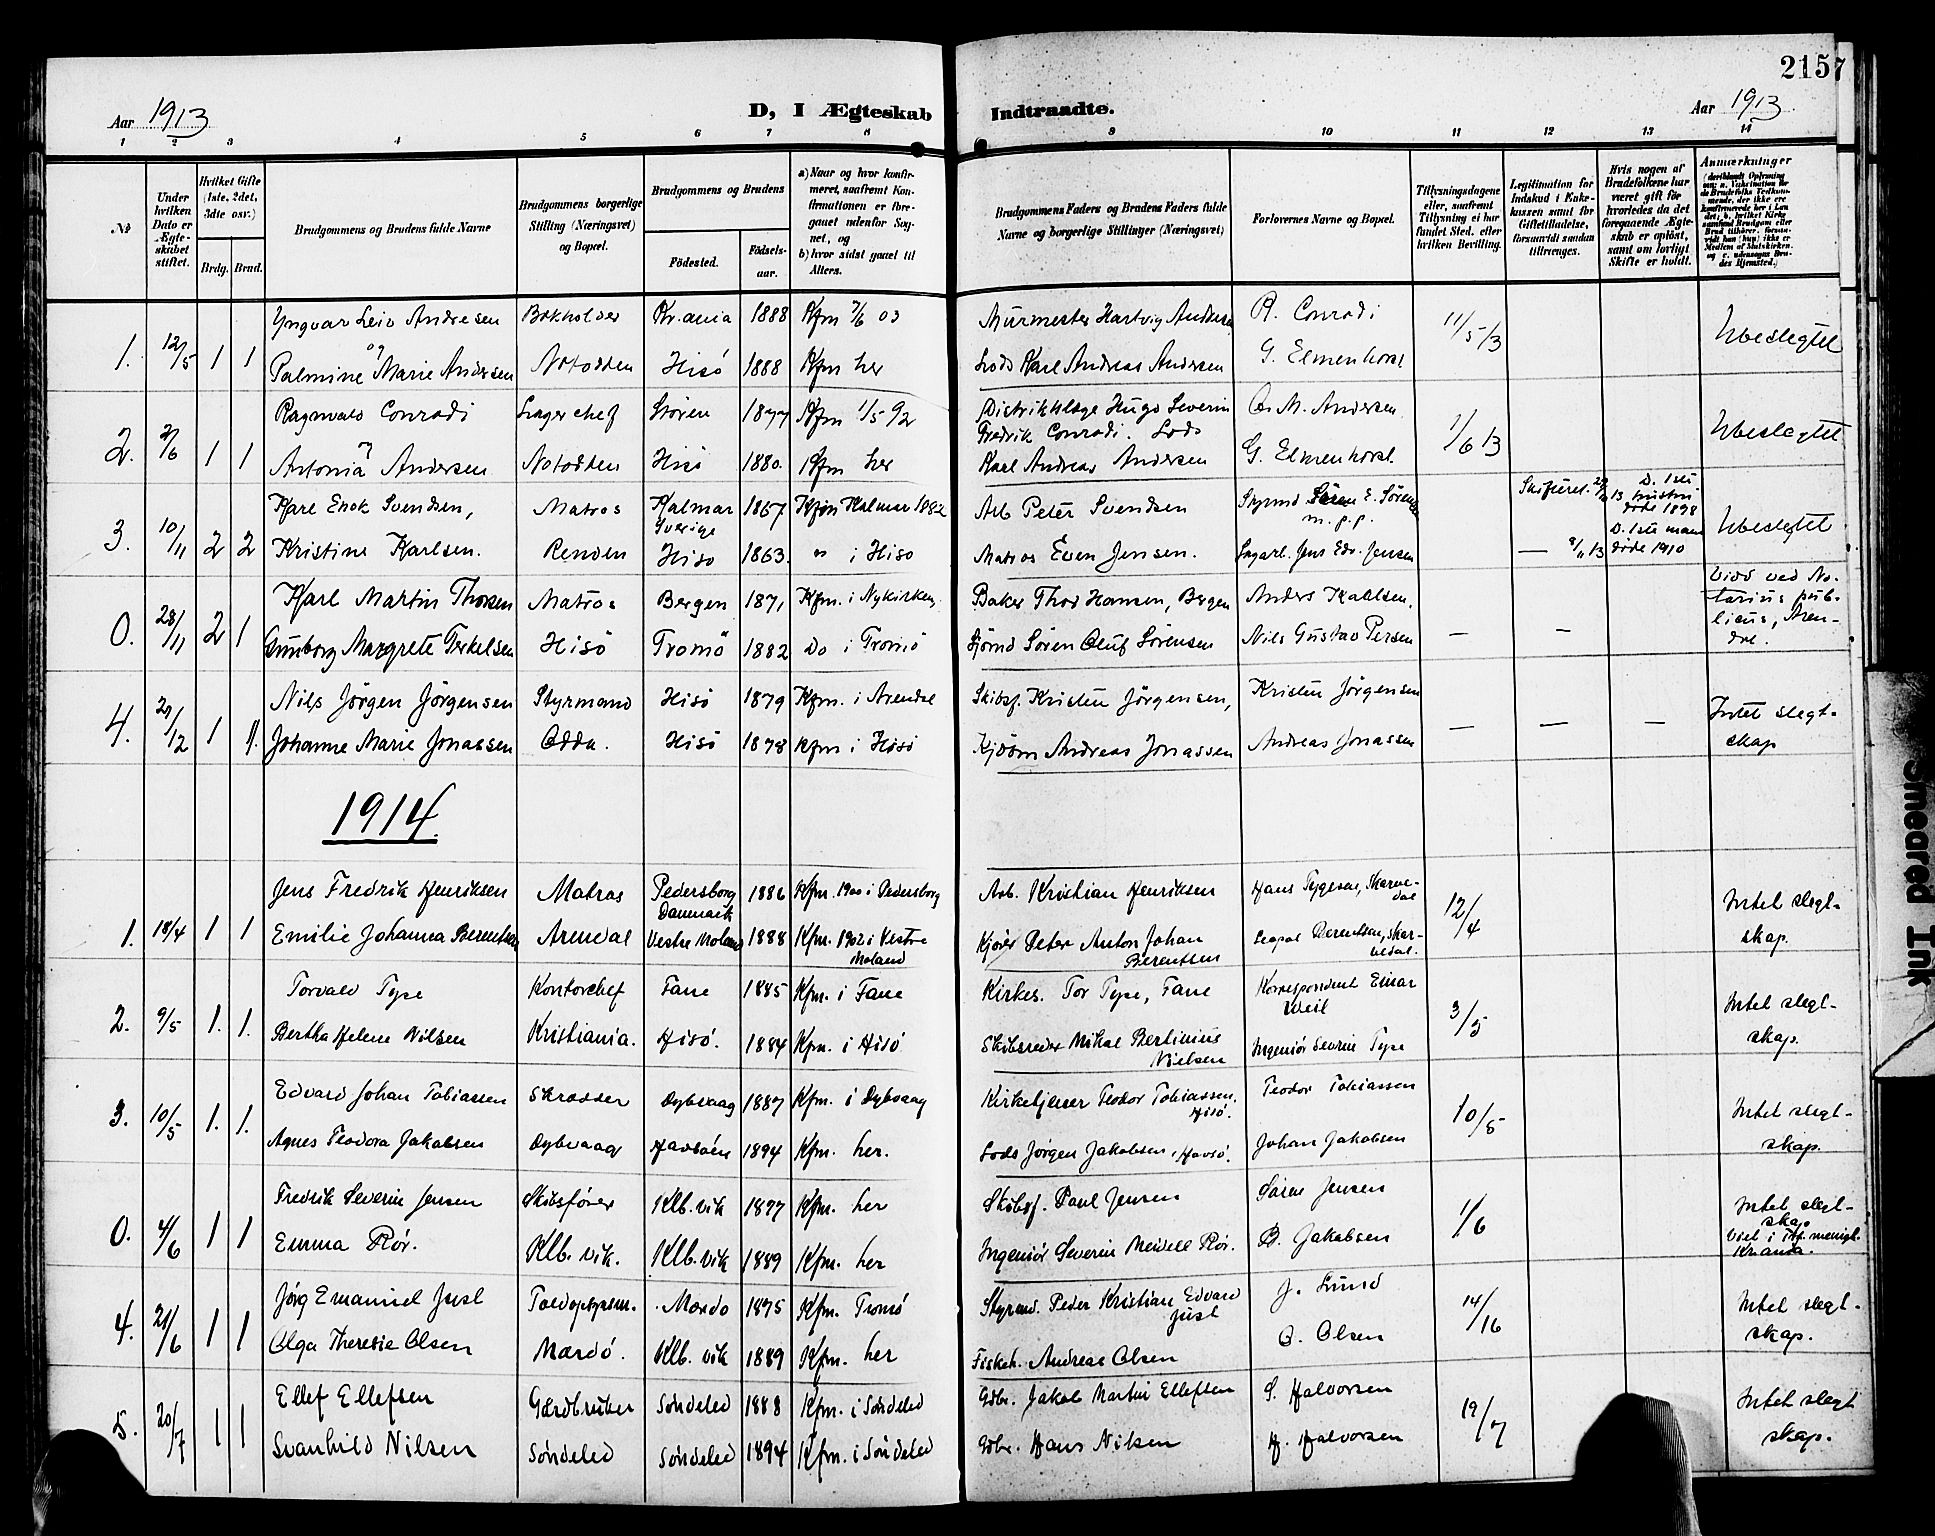 2157
Aar 1913
D, I Ægteskab Indtraadte.
Aar 1913
1 2 3 4 5 6 7 8 9 10 11 12 13 14
No
Under hvilken Dato er Ægteskabet stiftet.
Hvilket Gifte (1ste, 2det, 3die osv.)
Brdg. Brud.
Brudgommens og Brudens fulde Navne
Brudgommens borgerlige Stilling (Næringsvei) og Bopæl.
Brudgommens og Brudens
Fødested. Fødselsaar.
a) Naar og hvor konfirmeret, saafremt Konfirmationen er foregaaet udenfor Sognet, og
b) hvor sidst gaaet til Alters.
Brudgommens Faders og Brudens Faders fulde Navne og borgerlige Stillinger (Næringsvei)
Forlovernes Navne og Bopæl.
Tillysningsdagene eller, saafremt Tillysning ei har fundet Sted, efter hvilken Bevilling.
Legitimation for Indskud i Enkekassen samt for Giftetilladelse, forsaavidt saadan tiltrænges.
Hvis nogen af Brudefolkene har været gift før hvorledes da det foregaaende Ægteskab er opløst, samt om lovligt Skifte er holdt.
Anmærkninger
Yngvar Leiv Andresen Bokholder Kr.ania 1888 Kfm 7/6 03 Murmester Hartvig Andresen R. Conradi
1. 12/5 1 1 og 11/5 13 Ubeslegtet
Palmine Marie Andersen Notodden Hisö 1888 Kfm her Lods Karl Andreas Andersen G. Elmenhorst
Ragnvald Conradi Lagerchef Støren 1877 Kfm 1/5 92 Distriktslæge Hugo Severin Fredrik Conradi. Lods
2. 2/6 1 1 og 1/6 13 Ubeslegtet
Antonia Andersen Notodden Hisö 1880. Kfm her Karl Andreas Andersen G. Elmenhorst.
Karl Enok Svendsen, Matros Kalmar Sverige 1867 Kfm Kalmar 1882 Arb Peter Svendsen
3. 10/11 2 2 Ubeslegtet
Kristine Karlsen. Hisö 1863. i Hisö Matros Even Jensen. Jens Edv. Jensen D. 1ste mann døde 1910
Karl Martin Thorsen Matros Bergen 1871 Kfm. i Nykirken Baker Thor Hansen, Bergen Anders Karlsen.
0. 28/11 2 1 — — Viod ved Notarius publicus, Arendal.
Gunborg Margrete Terkelsen Hisö Tromö 1882 Do i Tromö Sjömd Sören Oluf Sörensen Nils Gustav Persen
Nils Jörgen Jörgensen Styrmand Hisö 1879 Kfm. i Arendal Skibsf. Kristen Jörgensen, Kristen Jörgensen
4. 29/12 1 1. — — — Intet slegtskap
Johanne Marie Jonassen Odda. Hisö 1878 Kfm i Hisö Andreas Jonassen Andreas Jonassen
1914
Jens Fredrik Henriksen Matros Pedersborg Danmark 1886 Kfm. 1900 i Pedersborg Arb. Kristian Henriksen
1. 18/4 1 1 12/4 Intet slegtskap.
Emilie Johanna Berentsen Arendal Vestre Moland 1888 Kfm. 1902 i Vestre Moland Kjører Peter Anton Johan Berentsen
Torvald Type Kontorchef Fane 1885 Kfm. i Fane Kirkes. Tor Type, Fane Korrespondent Einar Weil
2. 9/5 1. 1. 3/5 Intet slegtskap.
Bertha Helene Nilsen Kristiania. Hisö. 1884 Kfm. i Hisö Skibsreder Mikal Bertinius Nielsen Ingeniør Severin Type
Edvard Johan Tobiassen Skrædder Dybvaag 1887 Kfm. i Dybvaag Kirketjener Teodor Tobiassen, Hisö. Teodor Tobiassen
3. 10/5 1. 1. 10/5 Intet slegtskap.
Agnes Teodora Jakobsen Dybvaag Havsöen 1894 Kfm. her. Lods Jörgen Jakobsen, Havsö. Johan Jakobsen
Fredrik Severin Jensen Skibsfører Klb.vik 1877 Kfm. her Skibsf. Paul Jensen Søren Jensen
0. 4/6 1 1 1/6 Intet slegtskap
Emma Rör. Klb.vik. Klb.vik 1889 Kfm. her Ingeniør Severin Meidell Rör. B. Jakobsen
Jørg Emanuel Just Toldopsynsm. Mærdö 1875 Kfm. Tromö Styrmd. Peder Kristian Edvard Just J. Lund
4. 21/6 1 1 14/16 Intet slegtskap.
Olga Theresie Olsen Mærdö. Klb. vik 1889 Kfm. her Fiskeh. Andreas Olsen O. Olsen
Ellef Ellefsen Gårdbruker Söndeled 1888 Kfm. i Söndeled Gdbr. Jakob Martin Ellefsen S. Halvorsen
5. 20/7 1 1 19/7 Intet slegtskap.
Svanhild Nilsen Söndeled Söndeled 1894 Kfm. i Söndeled Gdbr. Hans Nilsen H. Halvorsen
Smeared Ink